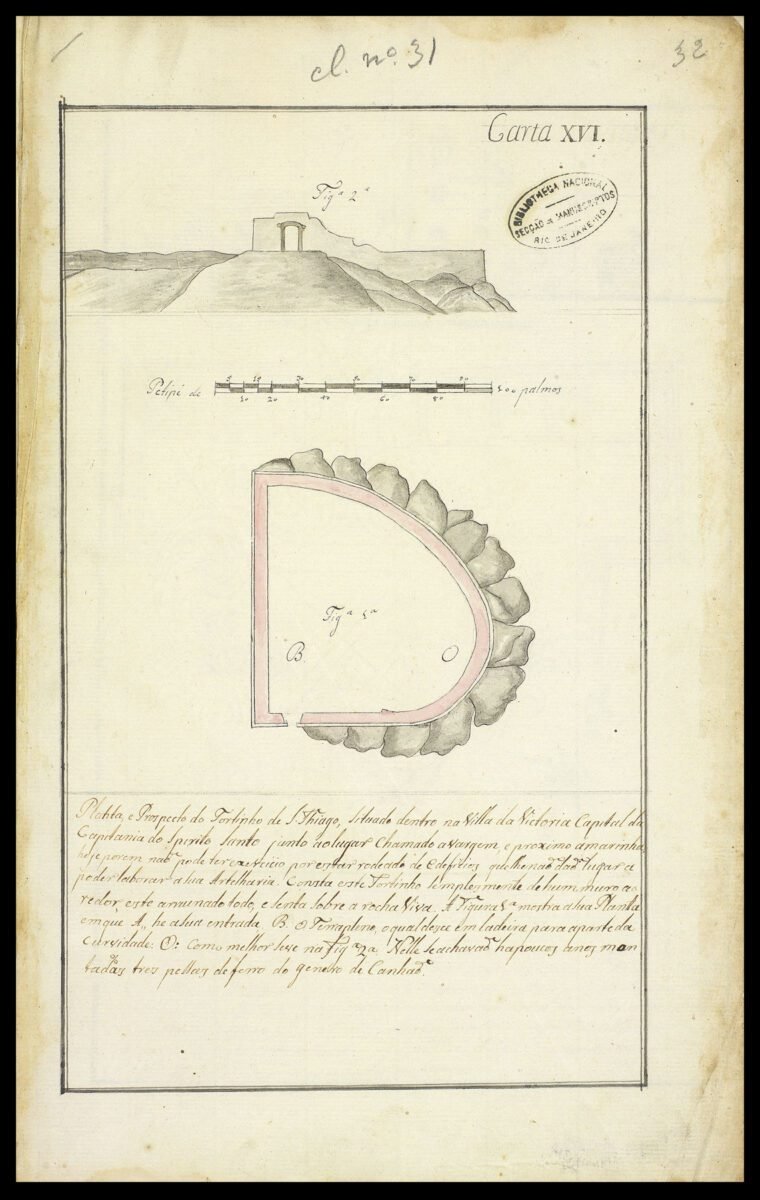 cl. nº. 31
32
Carta XVI.
BIBLIOTHECA NACIONAL
SECÇÃO de MANUSCRIPTOS
RIO DE JANEIRO
Figª 2ª
5 15 30 50 70 90
Petipé de 100 palmos
10 20 40 60 80
Figª 1ª
B. O
Planta, e Prospecto do Fortinho de S. Thiago, situado dentro na Villa da Victoria Capital da
Capitania do Spirito Santo junto ao lugar chamado a vargem, e proximo a marinha,
hoje porem naõ pode ter exercicio por estar rodeado de Edeficios, que lhe naõ daõ lugar a
poder laborar a sua Artelharia. Consta este Fortinho simplesmente de hum muro ao
redor, este arruinado todo, e senta sobre a rocha viva. A Figura 1ª mostra a sua Planta
em que A,, he a sua entrada, B. o Terrapleno, o qual desce em ladeira para a parte da
Curvidade. O: Como melhor se ve na Figª 2ª. Nelle se achavaõ ha poucos anos mon
tadas tres pessas de ferro do genero de Canhaõ.